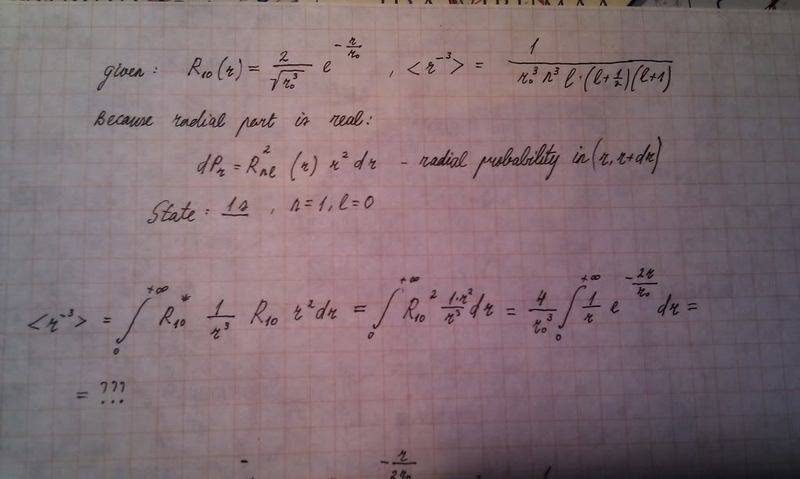 given: R₁₀(r) = 2/√(r₀³) e^(-r/r₀) , <r⁻³> = 1/(r₀³ n³ l·(l+1/2)(l+1))
Because radial part is real:
dPᵣ = R²ₙₗ (r) r² dr - radial probability in (r, r+dr)
State: 1s , n=1, l=0
<r⁻³> = ∫₀^(+∞) R₁₀* 1/r³ R₁₀ r² dr = ∫₀^(+∞) R₁₀² 1·r²/r³ dr = 4/r₀³ ∫₀^(+∞) 1/r e^(-2r/r₀) dr =
= ???
-r/2r₀